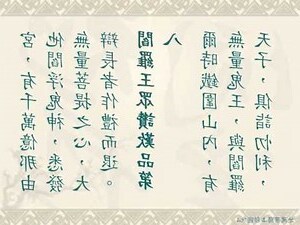 宮，有千萬億那由
他閻浮鬼神，悉發
無量菩提之心，大
辯長者作禮而退。
閻羅王眾讚歎品第
八
爾時鐵圍山內，有
無量鬼王，與閻羅
天子，俱詣忉利，